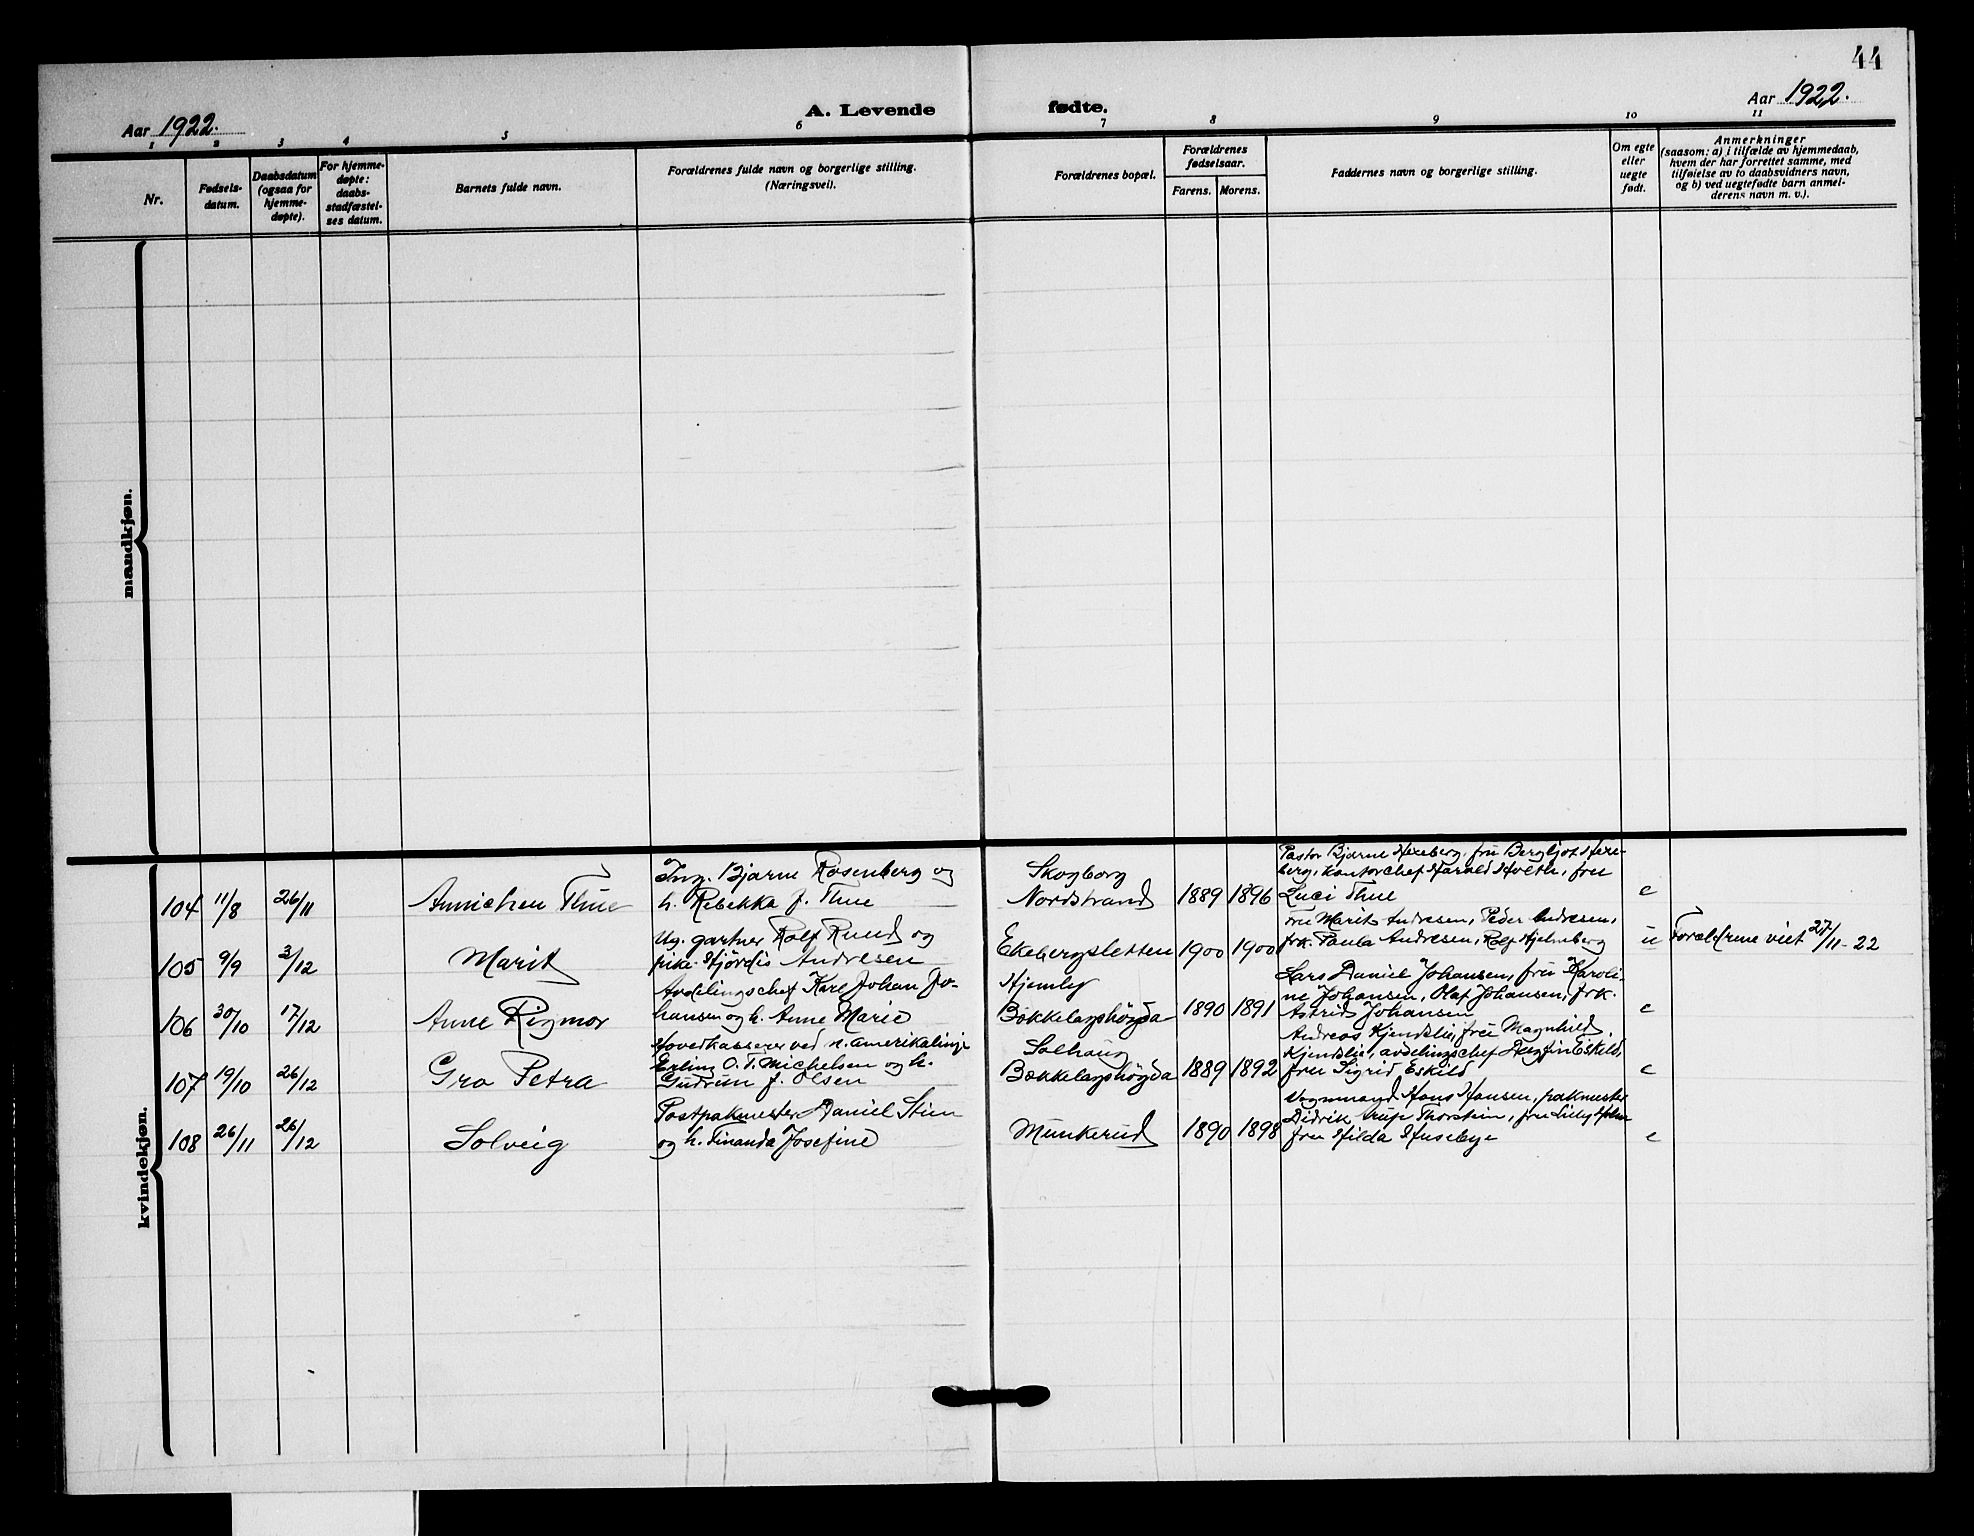 44
Aar 1922.
A. Levende fødte.
Aar 1922.
1 2 3 4 5 6 7 8 9 10 11
Nr.
Fødsels-
datum.
Daabsdatum
(ogsaa for
hjemme-
døpte).
For hjemme-
døpte:
daabs-
stadfæstel-
ses datum.
Barnets fulde navn.
Forældrenes fulde navn og borgerlige stilling.
(Næringsvei).
Forældrenes bopæl.
Forældrenes
fødselsaar.
Farens. Morens.
Faddernes navn og borgerlige stilling.
Om egte
eller
uegte
født.
Anmerkninger
(saasom: a) i tilfælde av hjemmedaab,
hvem der har forrettet samme, med
tilføielse av to daabsvidners navn,
og b) ved uegtefødte barn anmel-
derens navn m. v.).
mandkjøn.
kvindekjøn.
104 11/8 26/11
Annichen Thue
Ing. Bjarne Rosenberg og
h. Rebekka f. Thue
Skogborg
Nordstrand
1889 1896
Pastor Bjarne Hareberg, fru Bergljot Hare-
berg, kontorchef Harald Holth, fru
Luci Thue
e
105 9/9 3/12
Marit
Ug. gartner Rolf Ruud og
pike Hjørdis Andresen
Ekebergsletten
1900 1900
Fru Marit Andresen, Peder Andresen,
frk. Paula Andresen, Rolf Hjelmberg
u
Forældrene viet 27/11-22
106 30/10 17/12
Anne Rigmor
Avdelingschef Karl Johan Jo-
hansen og h. Anne Marie
Hjemly
Bækkelagshøgda
1890 1891
Lars Daniel Johansen, fru Karoli-
ne Johansen, Olaf Johansen, frk.
Astrid Johansen
e
107 19/10 26/12
Gro Petra
Hovedkasserer ved n. amerikalinje
Erling O. T. Michelsen og h.
Gudrun f. Olsen
Solhaug
Bækkelagshøgda
1889 1892
Andreas Kjendlie, fru Magnhild
Kjendlie, avdelingschef Dagfin Eskild,
fru Sigrid Eskild
e
108 26/11 26/12
Solveig
Postpakmester Daniel Stien
og h. Finanda Josefine
Munkerud
1890 1898
Vognmand Hans Hansen, pakmester
Didrik Thorstein, fru Lilly
fru Hilda Husebye
e